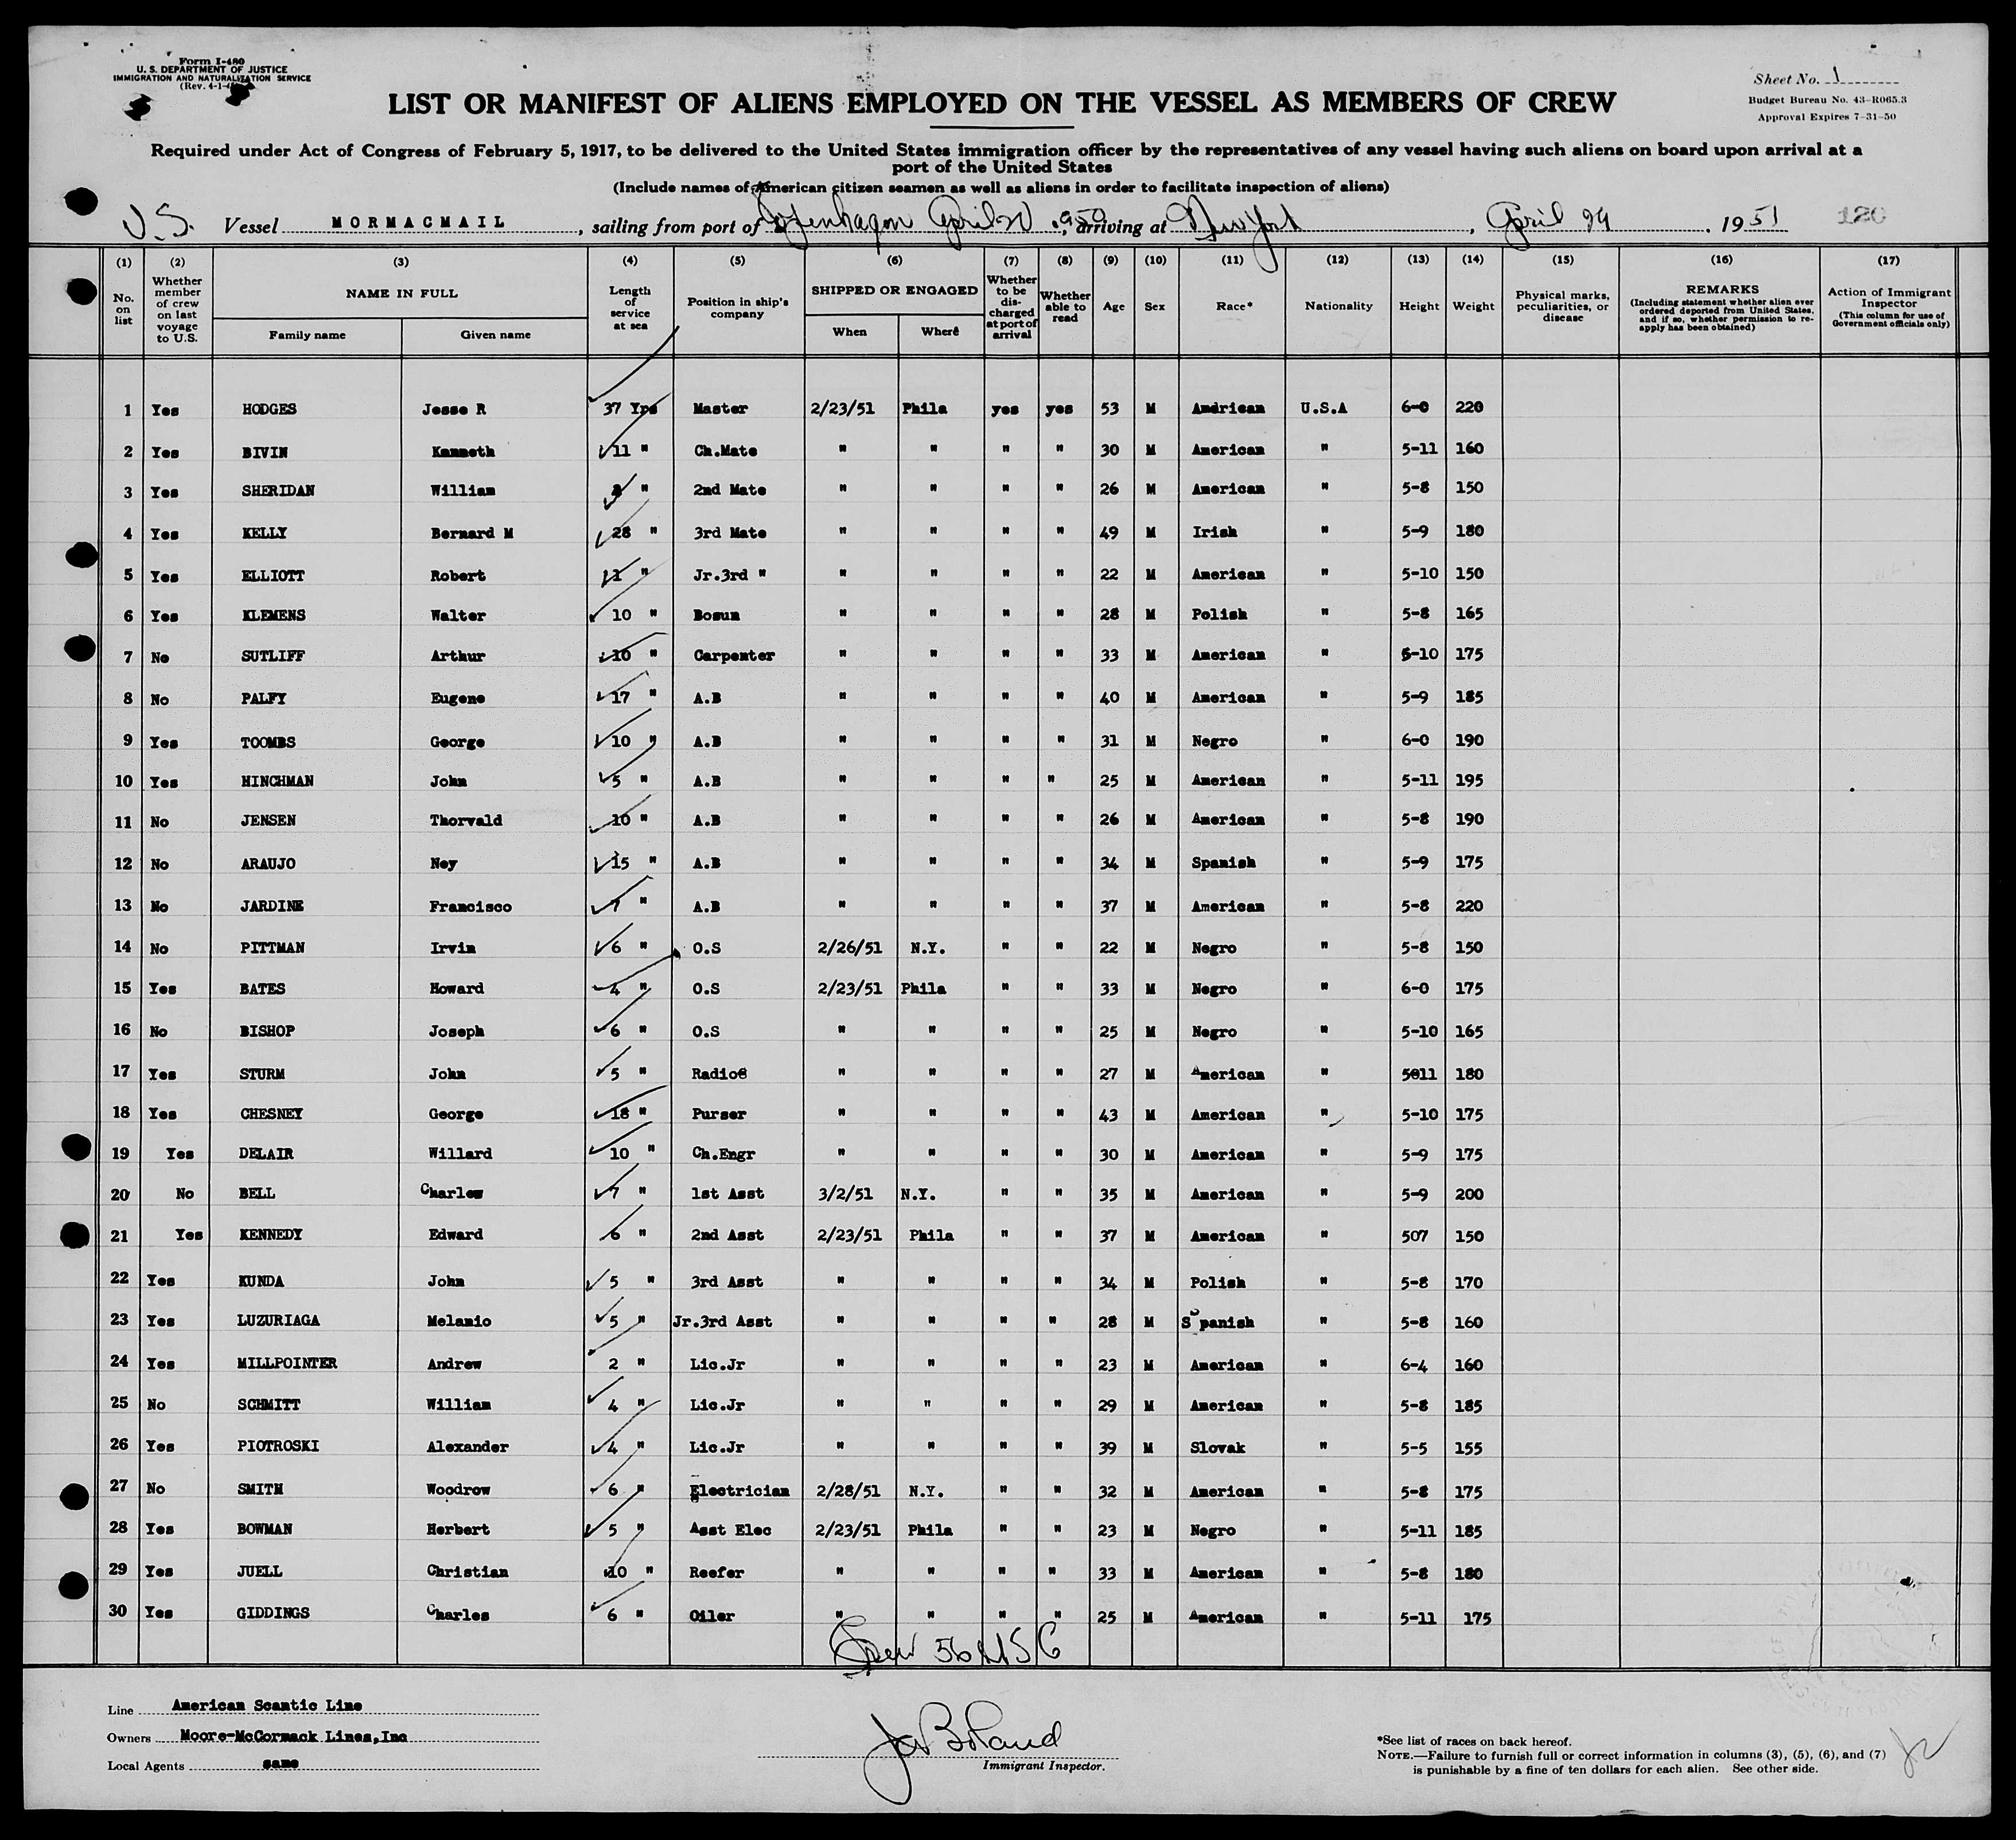 Form I-480
U. S. DEPARTMENT OF JUSTICE
IMMIGRATION AND NATURALIZATION SERVICE
(Rev. 4-1-
Sheet No. 1
Budget Bureau No. 43-R065.3
Approval Expires 7-31-50
LIST OR MANIFEST OF ALIENS EMPLOYED ON THE VESSEL AS MEMBERS OF CREW
Required under Act of Congress of February 5, 1917, to be delivered to the United States immigration officer by the representatives of any vessel having such aliens on board upon arrival at a
port of the United States
(Include names of American citizen seamen as well as aliens in order to facilitate inspection of aliens)
U.S. Vessel MORMACMAIL, sailing from port of Copenhagen April, arriving at New York, April 1951 120
(1) (2) (3) (4) (5) (6) (7) (8) (9) (10) (11) (12) (13) (14) (15) (16) (17)
No. on list Whether member of crew on last voyage to U.S. NAME IN FULL Family name Given name Length of service at sea Position in ship's company SHIPPED OR ENGAGED When Where Whether to be discharged at port of arrival Whether able to read Age Sex Race* Nationality Height Weight Physical marks, peculiarities, or disease REMARKS (Including statement whether alien ever ordered deported from United States, and if so, whether permission to re-apply has been obtained) Action of Immigrant Inspector (This column for use of Government officials only)
1 Yes HODGES Jesse R 37 Yrs Master 2/23/51 Phila yes yes 53 M Amdrican U.S.A 6-0 220
2 Yes BIVIN Kenneth 11 " Ch.Mate " " " " 30 M American " 5-11 160
3 Yes SHERIDAN William " 2nd Mate " " " " 26 M American " 5-8 150
4 Yes KELLY Bernard M 28 " 3rd Mate " " " " 49 M Irish " 5-9 180
5 Yes ELLIOTT Robert " Jr.3rd " " " " " 22 M American " 5-10 150
6 Yes KLEMENS Walter 10 " Bosun " " " " 28 M Polish " 5-8 165
7 No SUTLIFF Arthur 10 " Carpenter " " " " 33 M American " 5-10 175
8 No PALFY Eugene 17 " A.B " " " " 40 M American " 5-9 185
9 Yes TOOMBS George 10 " A.B " " " " 31 M Negro " 6-0 190
10 Yes HINCHMAN John 5 " A.B " " " " 25 M American " 5-11 195
11 No JENSEN Thorvald 10 " A.B " " " " 26 M American " 5-8 190
12 No ARAUJO Ney 15 " A.B " " " " 34 M Spanish " 5-9 175
13 No JARDINE Francisco 7 " A.B " " " " 37 M American " 5-8 220
14 No PITTMAN Irvin 6 " O.S 2/26/51 N.Y. " " 22 M Negro " 5-8 150
15 Yes BATES Howard 4 " O.S 2/23/51 Phila " " 33 M Negro " 6-0 175
16 No BISHOP Joseph 6 " O.S " " " " 25 M Negro " 5-10 165
17 Yes STURM John 5 " Radio " " " " 27 M American " 5011 180
18 Yes CHESNEY George 18 " Purser " " " " 43 M American " 5-10 175
19 Yes DELAIR Willard 10 " Ch.Engr " " " " 30 M American " 5-9 175
20 No BELL Charles 7 " 1st Asst 3/2/51 N.Y. " " 35 M American " 5-9 200
21 Yes KENNEDY Edward 6 " 2nd Asst 2/23/51 Phila " " 37 M American " 507 150
22 Yes KUNDA John 5 " 3rd Asst " " " " 34 M Polish " 5-8 170
23 Yes LUZURIAGA Melanio 5 " Jr.3rd Asst " " " " 28 M Spanish " 5-8 160
24 Yes MILLPOINTER Andrew 2 " Lic.Jr " " " " 23 M American " 6-4 160
25 No SCHMITT William 4 " Lic.Jr " " " " 29 M American " 5-8 185
26 Yes PIOTROSKI Alexander 4 " Lic.Jr " " " " 39 M Slovak " 5-5 155
27 No SMITH Woodrow 6 " Electrician 2/28/51 N.Y. " " 32 M American " 5-8 175
28 Yes BOWMAN Herbert 5 " Asst Elec 2/23/51 Phila " " 23 M Negro " 5-11 185
29 Yes JUELL Christian 10 " Reefer " " " " 33 M American " 5-8 180
30 Yes GIDDINGS Charles 6 " Oiler " " " " 25 M American " 5-11 175
Crew 56 USC
Line American Scantic Line
Owners Moore-McCormack Lines,Inc
Local Agents same
Immigrant Inspector.
*See list of races on back hereof.
NOTE.—Failure to furnish full or correct information in columns (3), (5), (6), and (7)
is punishable by a fine of ten dollars for each alien. See other side.